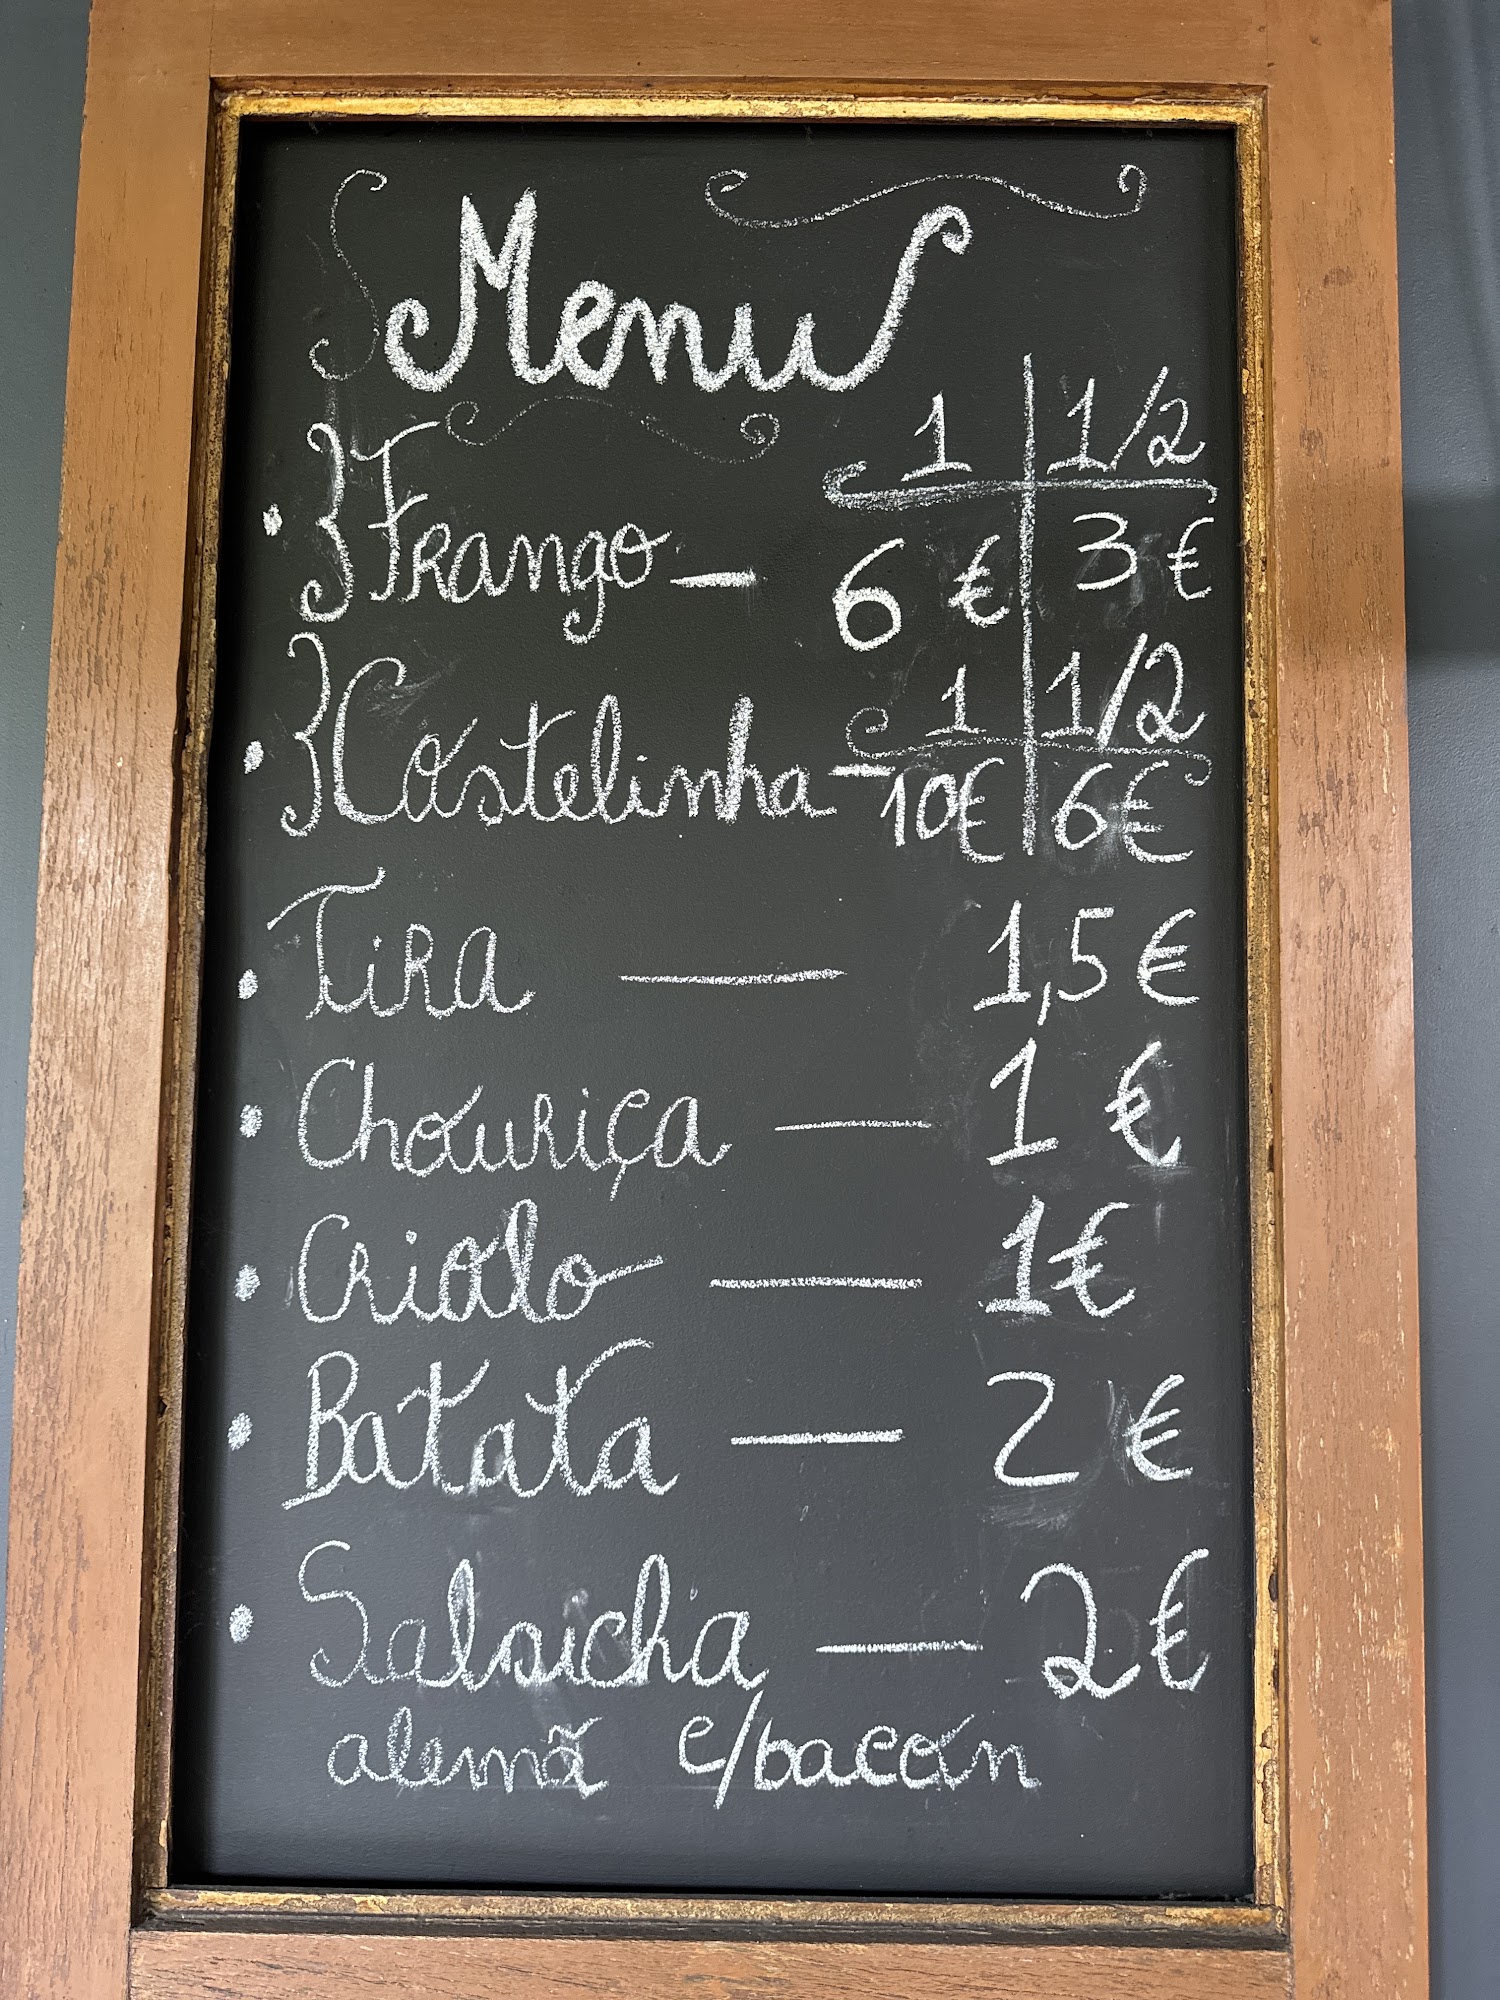 Menu
1 | 1/2
• Frango — 6 € | 3 €
1 | 1/2
• Costelinha — 10€ | 6€
• Tira — 1,5 €
• Chouriça — 1 €
• Criolo — 1€
• Batata — 2 €
• Salsicha — 2€
alemã c/bacon